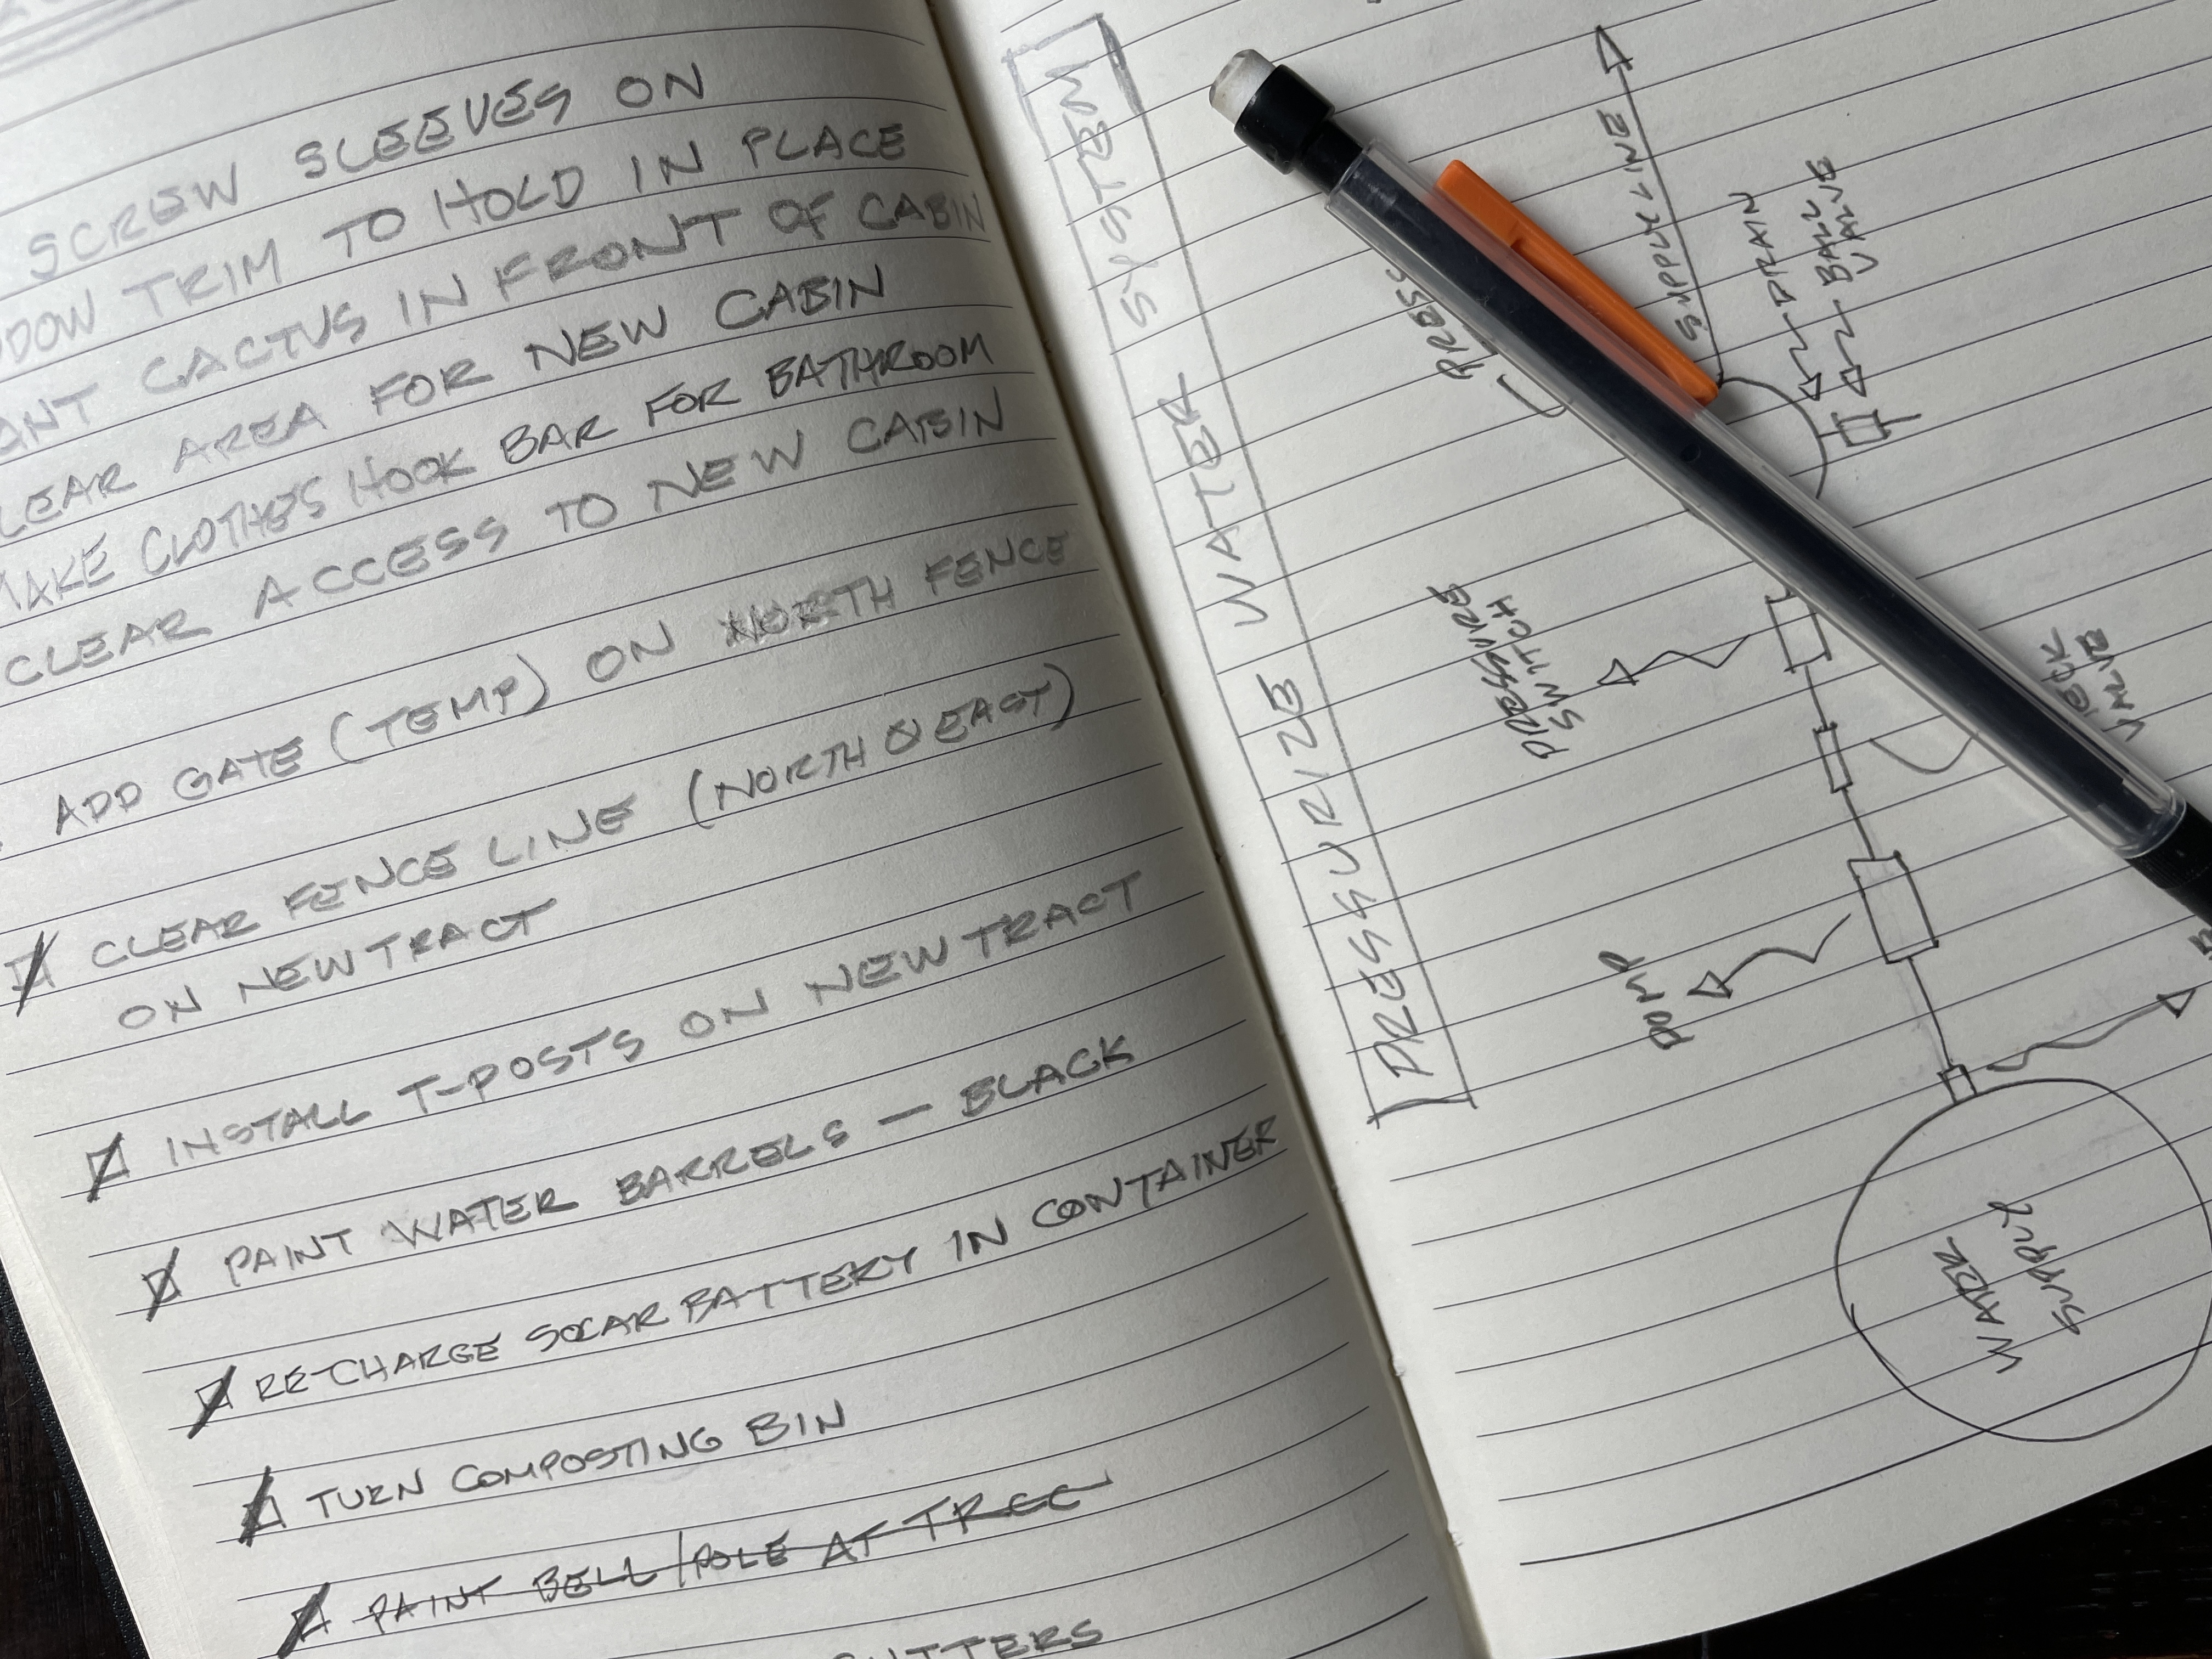 SCREW SLEEVES ON
TRIM TO HOLD IN PLACE
CACTUS IN FRONT OF CABIN
CLEAR AREA FOR NEW CABIN
MAKE CLOTHES HOOK BAR FOR BATHROOM
CLEAR ACCESS TO NEW CABIN
ADD GATE (TEMP) ON NORTH FENCE
CLEAR FENCE LINE (NORTH & EAST)
ON NEW TRACT
INSTALL T-POSTS ON NEW TRACT
PAINT WATER BARRELS — BLACK
RE-CHARGE SOLAR BATTERY IN CONTAINER
TURN COMPOSTING BIN
PAINT BELL/POLE AT TREE
PRESSURIZE WATER SYSTEM
SUPPLY LINE
DRAIN
BALL
VALVE
PRESSURE
SWITCH
VALVE
PUMP
WATER
SUPPLY